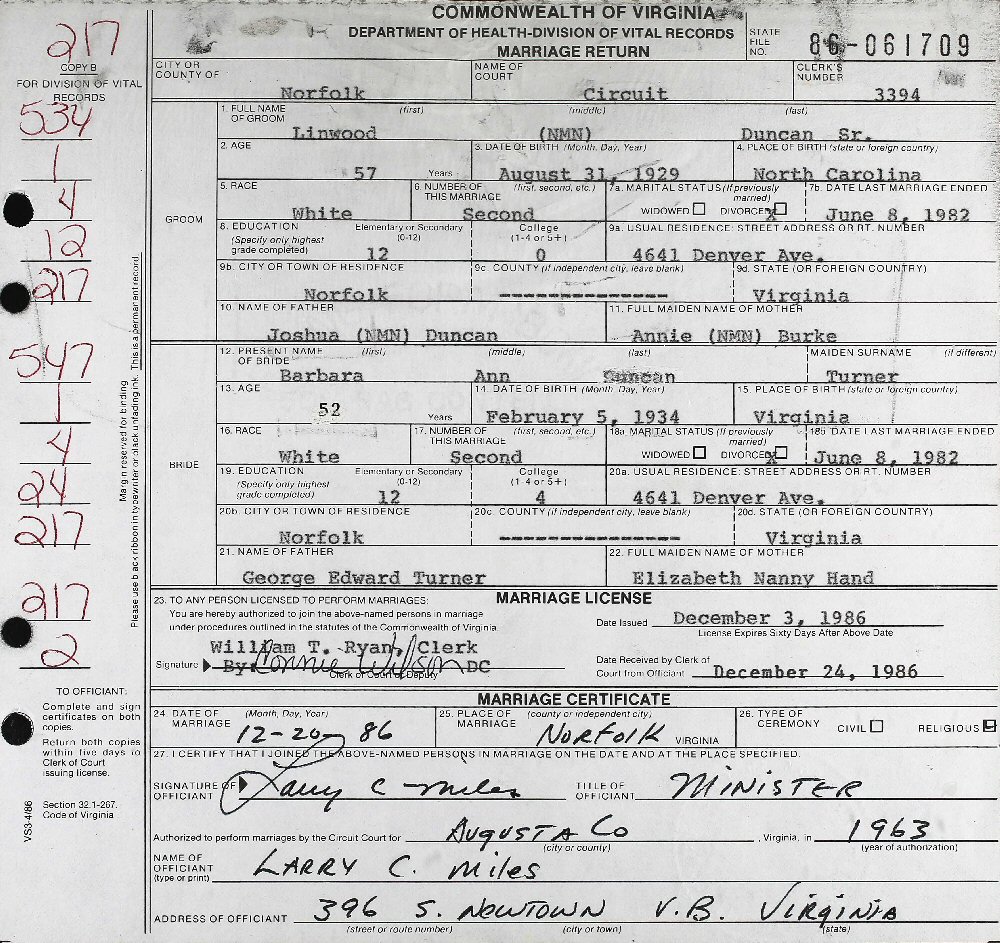 COMMONWEALTH OF VIRGINIA
DEPARTMENT OF HEALTH-DIVISION OF VITAL RECORDS
MARRIAGE RETURN
STATE FILE NO. 86-061709
217
COPY B
FOR DIVISION OF VITAL RECORDS
534
1
4
12
217
547
1
4
24
217
217
2
Margin reserved for binding
Please use black ribbon in typewriter or black unfading ink. This is a permanent record.
TO OFFICIANT:
Complete and sign
certificates on both
copies.
Return both copies
within five days to
Clerk of Court
issuing license.
Section 32.1-267.
Code of Virginia
VS3-4/86
CITY OR COUNTY OF Norfolk
NAME OF COURT Circuit
CLERK'S NUMBER 3394
GROOM
1. FULL NAME OF GROOM (first) (middle) (last)
Linwood (NMN) Duncan Sr.
2. AGE 57 Years
3. DATE OF BIRTH (Month, Day, Year) August 31, 1929
4. PLACE OF BIRTH (state or foreign country) North Carolina
5. RACE White
6. NUMBER OF THIS MARRIAGE (first, second, etc.) Second
7a. MARITAL STATUS (If previously married) WIDOWED DIVORCED X
7b. DATE LAST MARRIAGE ENDED June 8, 1982
8. EDUCATION (Specify only highest grade completed) Elementary or Secondary (0-12) 12 College (1-4 or 5+) 0
9a. USUAL RESIDENCE: STREET ADDRESS OR RT. NUMBER 4641 Denver Ave.
9b. CITY OR TOWN OF RESIDENCE Norfolk
9c. COUNTY (if independent city, leave blank) ---------------
9d. STATE (OR FOREIGN COUNTRY) Virginia
10. NAME OF FATHER Joshua (NMN) Duncan
11. FULL MAIDEN NAME OF MOTHER Annie (NMN) Burke
BRIDE
12. PRESENT NAME OF BRIDE (first) (middle) (last) MAIDEN SURNAME (if different)
Barbara Ann Duncan Turner
13. AGE 52 Years
14. DATE OF BIRTH (Month, Day, Year) February 5, 1934
15. PLACE OF BIRTH (state or foreign country) Virginia
16. RACE White
17. NUMBER OF THIS MARRIAGE (first, second, etc.) Second
18a. MARITAL STATUS (If previously married) WIDOWED DIVORCED X
18b. DATE LAST MARRIAGE ENDED June 8, 1982
19. EDUCATION (Specify only highest grade completed) Elementary or Secondary (0-12) 12 College (1-4 or 5+) 4
20a. USUAL RESIDENCE: STREET ADDRESS OR RT. NUMBER 4641 Denver Ave.
20b. CITY OR TOWN OF RESIDENCE Norfolk
20c. COUNTY (if independent city, leave blank) ----------------
20d. STATE (OR FOREIGN COUNTRY) Virginia
21. NAME OF FATHER George Edward Turner
22. FULL MAIDEN NAME OF MOTHER Elizabeth Nanny Hand
23. TO ANY PERSON LICENSED TO PERFORM MARRIAGES: MARRIAGE LICENSE
You are hereby authorized to join the above-named persons in marriage
under procedures outlined in the statutes of the Commonwealth of Virginia.
Date Issued December 3, 1986
License Expires Sixty Days After Above Date
William T. Ryan, Clerk
Signature By: Connie Wilson DC
Clerk of Court or Deputy
Date Received by Clerk of
Court from Officiant December 24, 1986
MARRIAGE CERTIFICATE
24. DATE OF MARRIAGE (Month, Day, Year) 12-20-86
25. PLACE OF MARRIAGE (county or independent city) Norfolk VIRGINIA
26. TYPE OF CEREMONY CIVIL RELIGIOUS
27. I CERTIFY THAT I JOINED THE ABOVE-NAMED PERSONS IN MARRIAGE ON THE DATE AND AT THE PLACE SPECIFIED.
SIGNATURE OF OFFICIANT Larry C Miles TITLE OF OFFICIANT MINISTER
Authorized to perform marriages by the Circuit Court for AUGUSTA Co, Virginia, in 1963
(city or county) (year of authorization)
NAME OF OFFICIANT (type or print) LARRY C. Miles
ADDRESS OF OFFICIANT 396 S. NEWTOWN V.B. VIRGINIA
(street or route number) (city or town) (state)